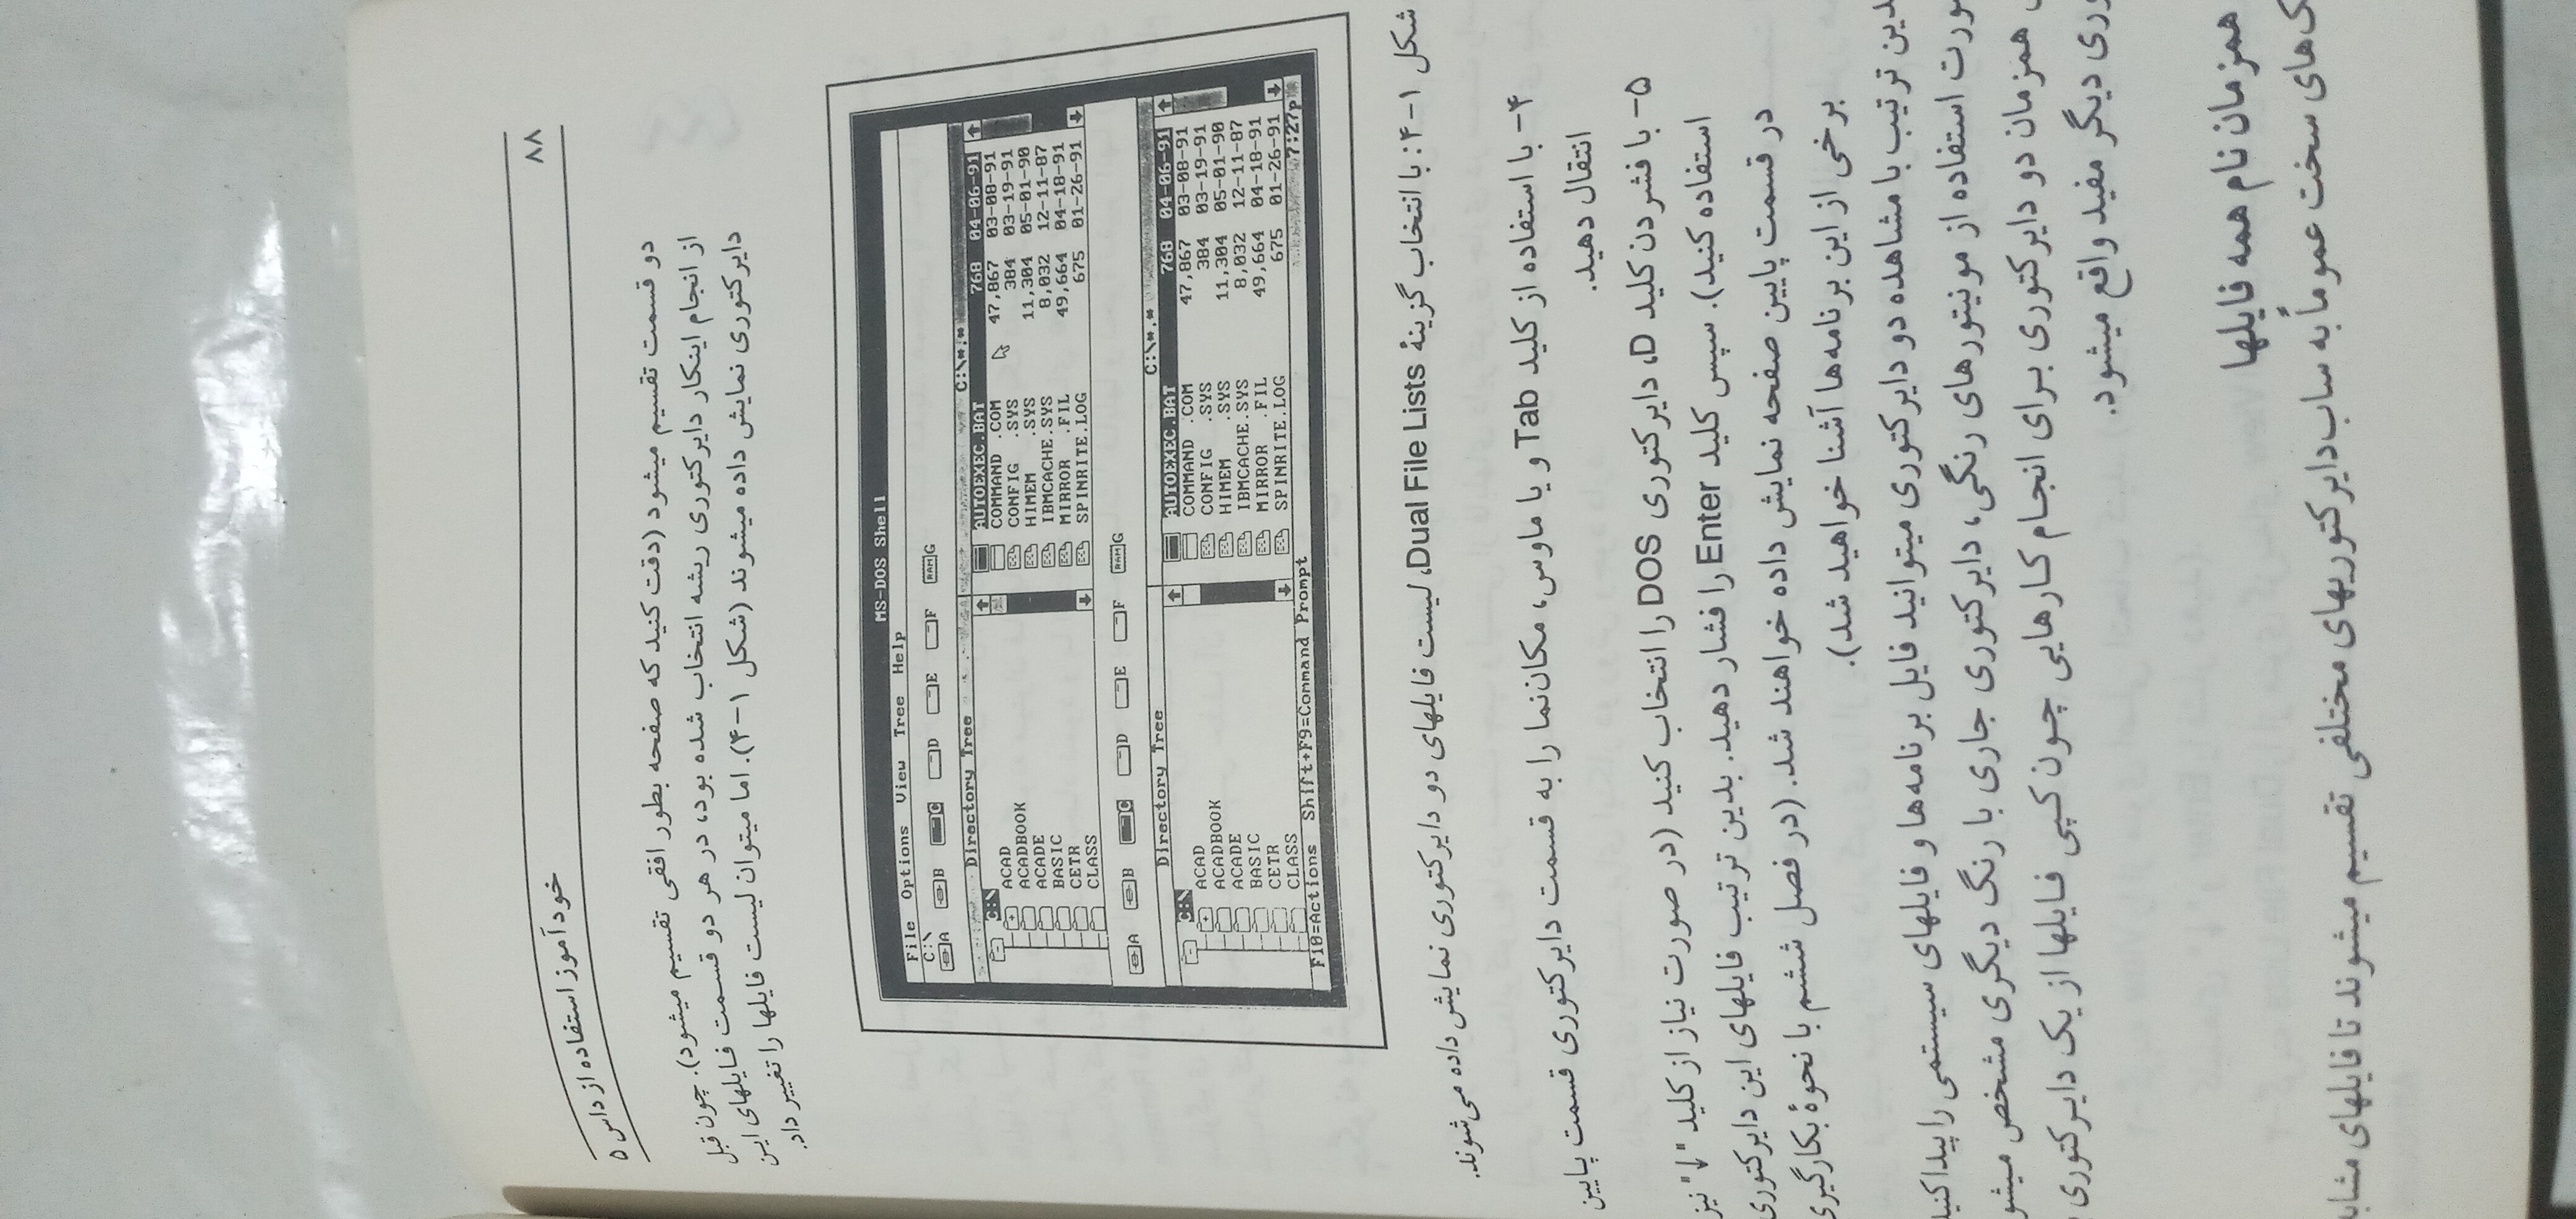 ۸۸
خودآموز استفاده از داس ۵
دو قسمت تقسیم میشود (دقت کنید که صفحه بطور افقی تقسیم میشود). چون قبل
از انجام اینکار دایرکتوری ریشه انتخاب شده بود، در هر دو قسمت فایلهای این
دایرکتوری نمایش داده میشوند (شکل ۱-۴). اما میتوان لیست فایلها را تغییر داد.
MS-DOS Shell
File Options View Tree Help
C:\
A B C D E F RAM G
Directory Tree C:\*.*
C:\ AUTOEXEC.BAT 768 04-06-91
ACAD COMMAND .COM 47,867 03-08-91
ACADBOOK CONFIG .SYS 384 03-19-91
ACADE HIMEM .SYS 11,304 05-01-90
BASIC IBMCACHE.SYS 8,032 12-11-87
CETR MIRROR .FIL 49,664 04-18-91
CLASS SPINRITE.LOG 675 01-26-91
A B C D E F RAM G
Directory Tree C:\*.*
C:\ AUTOEXEC.BAT 768 04-06-91
ACAD COMMAND .COM 47,867 03-08-91
ACADBOOK CONFIG .SYS 384 03-19-91
ACADE HIMEM .SYS 11,304 05-01-90
BASIC IBMCACHE.SYS 8,032 12-11-87
CETR MIRROR .FIL 49,664 04-18-91
CLASS SPINRITE.LOG 675 01-26-91
F10=Actions Shift+F9=Command Prompt 7:27p
شکل ۱-۴: با انتخاب گزینهٔ Dual File Lists، لیست فایلهای دو دایرکتوری نمایش داده می‌شوند.
۴- با استفاده از کلید Tab و یا ماوس، مکان‌نما را به قسمت دایرکتوری قسمت پایین
انتقال دهید.
۵- با فشردن کلید D، دایرکتوری DOS را انتخاب کنید (در صورت نیاز از کلید "↓" نیز
استفاده کنید). سپس کلید Enter را فشار دهید. بدین ترتیب فایلهای این دایرکتوری
در قسمت پایین صفحه نمایش داده خواهند شد. (در فصل ششم با نحوهٔ بکارگیری
برخی از این برنامه‌ها آشنا خواهید شد).
ترتیب با مشاهده دو دایرکتوری میتوانید فایل برنامه‌ها و فایلهای سیستمی را پیدا
استفاده از مونیتورهای رنگی، دایرکتوری جاری با رنگ دیگری مشخص
همزمان دو دایرکتوری برای انجام کارهایی چون کپی فایلها از یک دایرکتوری
دیگر مفید واقع میشود.
همزمان نام همه فایلها
سخت عموماً به ساب‌دایرکتوریهای مختلفی تقسیم میشوند تا فایلهای